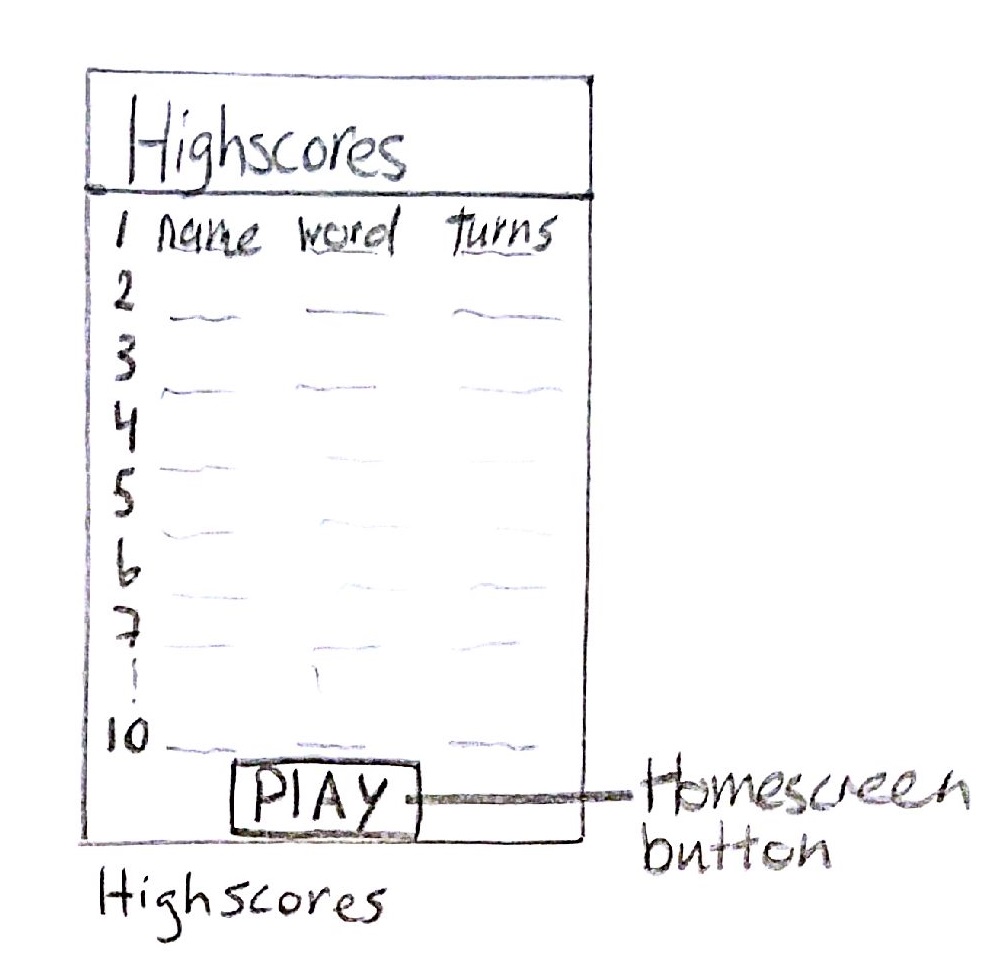 Highscores
1 name word turns
2
3
4
5
6
7
10
PLAY
Homescreen
button
Highscores